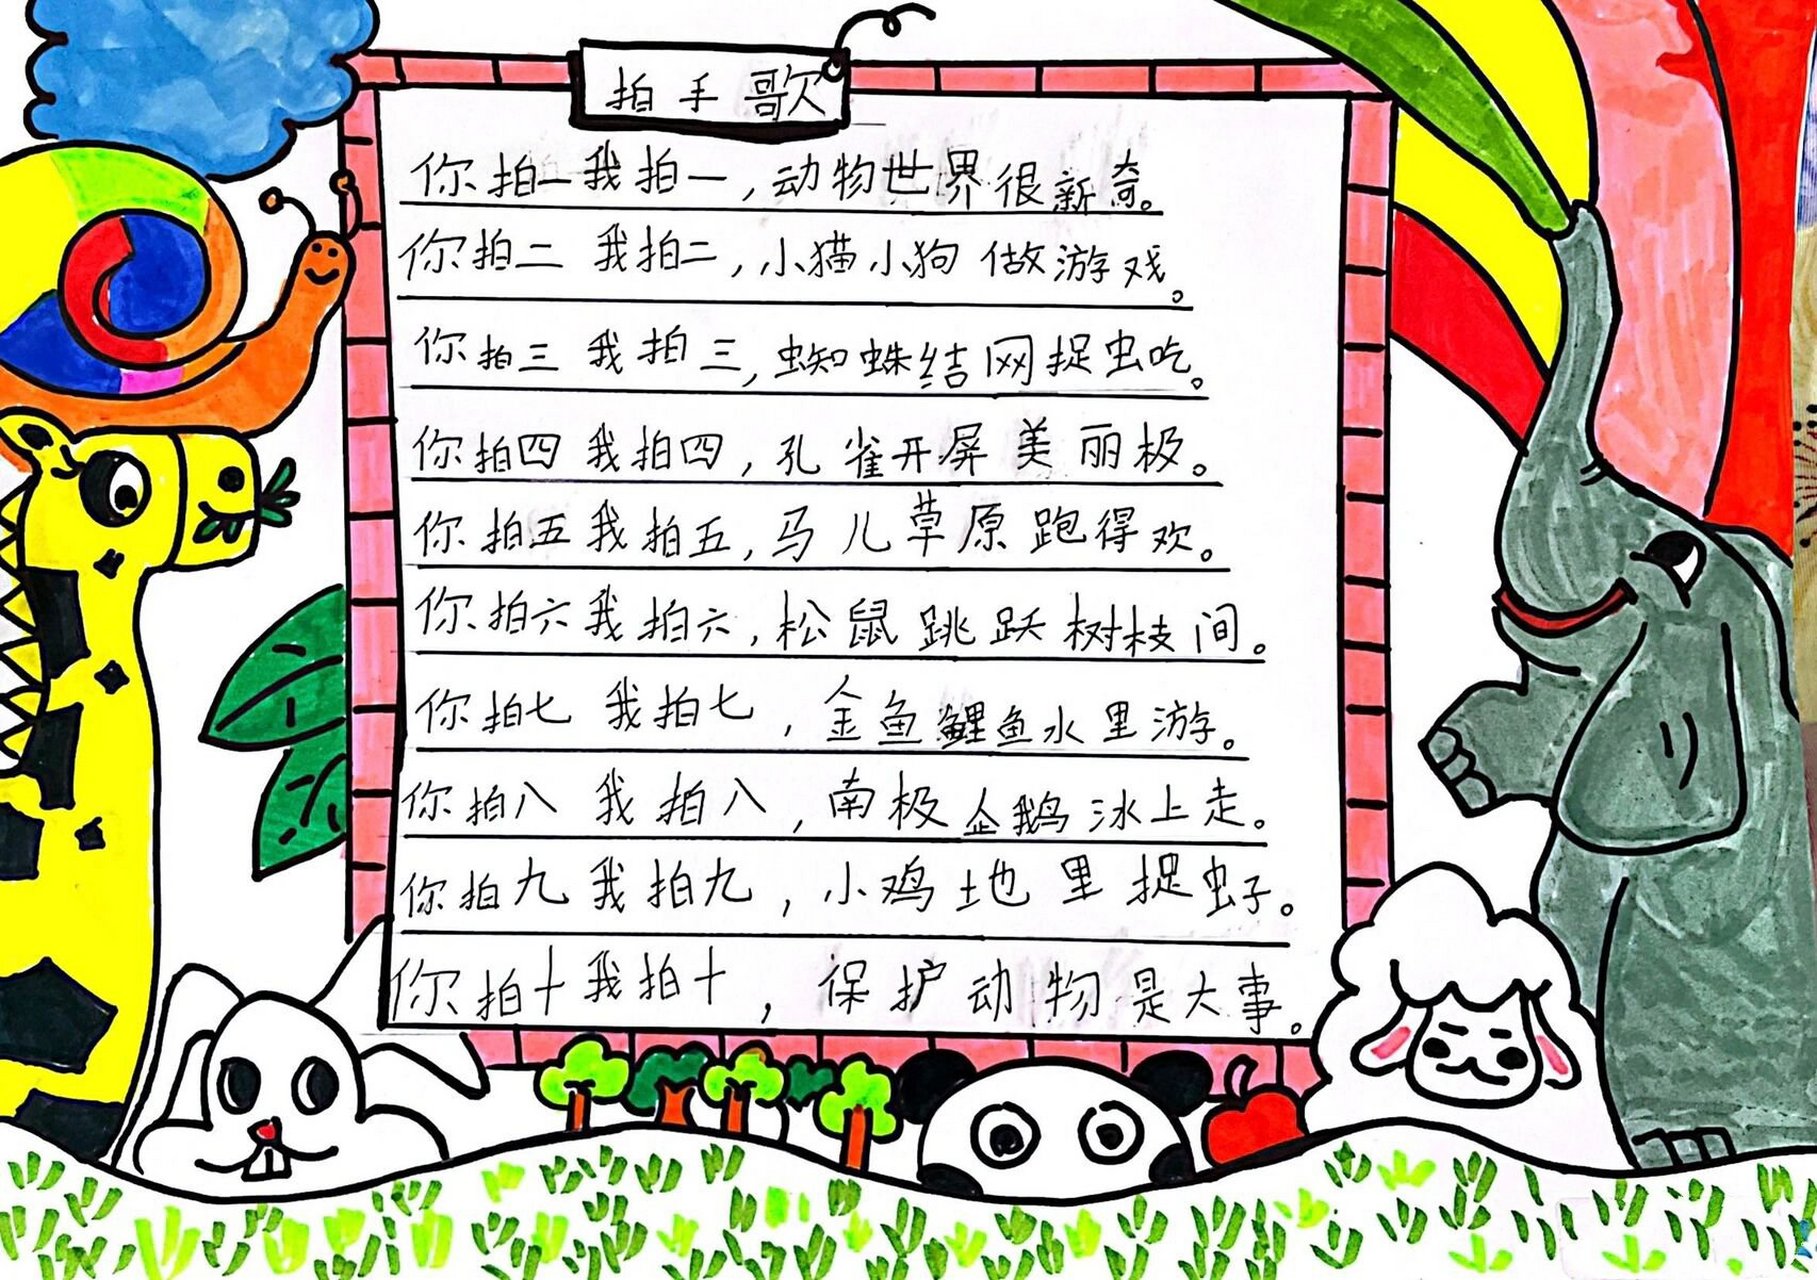 拍手歌
你拍一我拍一,动物世界很新奇。
你拍二我拍二,小猫小狗做游戏。
你拍三我拍三,蜘蛛结网捉虫吃。
你拍四我拍四,孔雀开屏美丽极。
你拍五我拍五,马儿草原跑得欢。
你拍六我拍六,松鼠跳跃树枝间。
你拍七我拍七,金鱼鲤鱼水里游。
你拍八我拍八,南极企鹅冰上走。
你拍九我拍九,小鸡地里捉虫子。
你拍十我拍十,保护动物是大事。